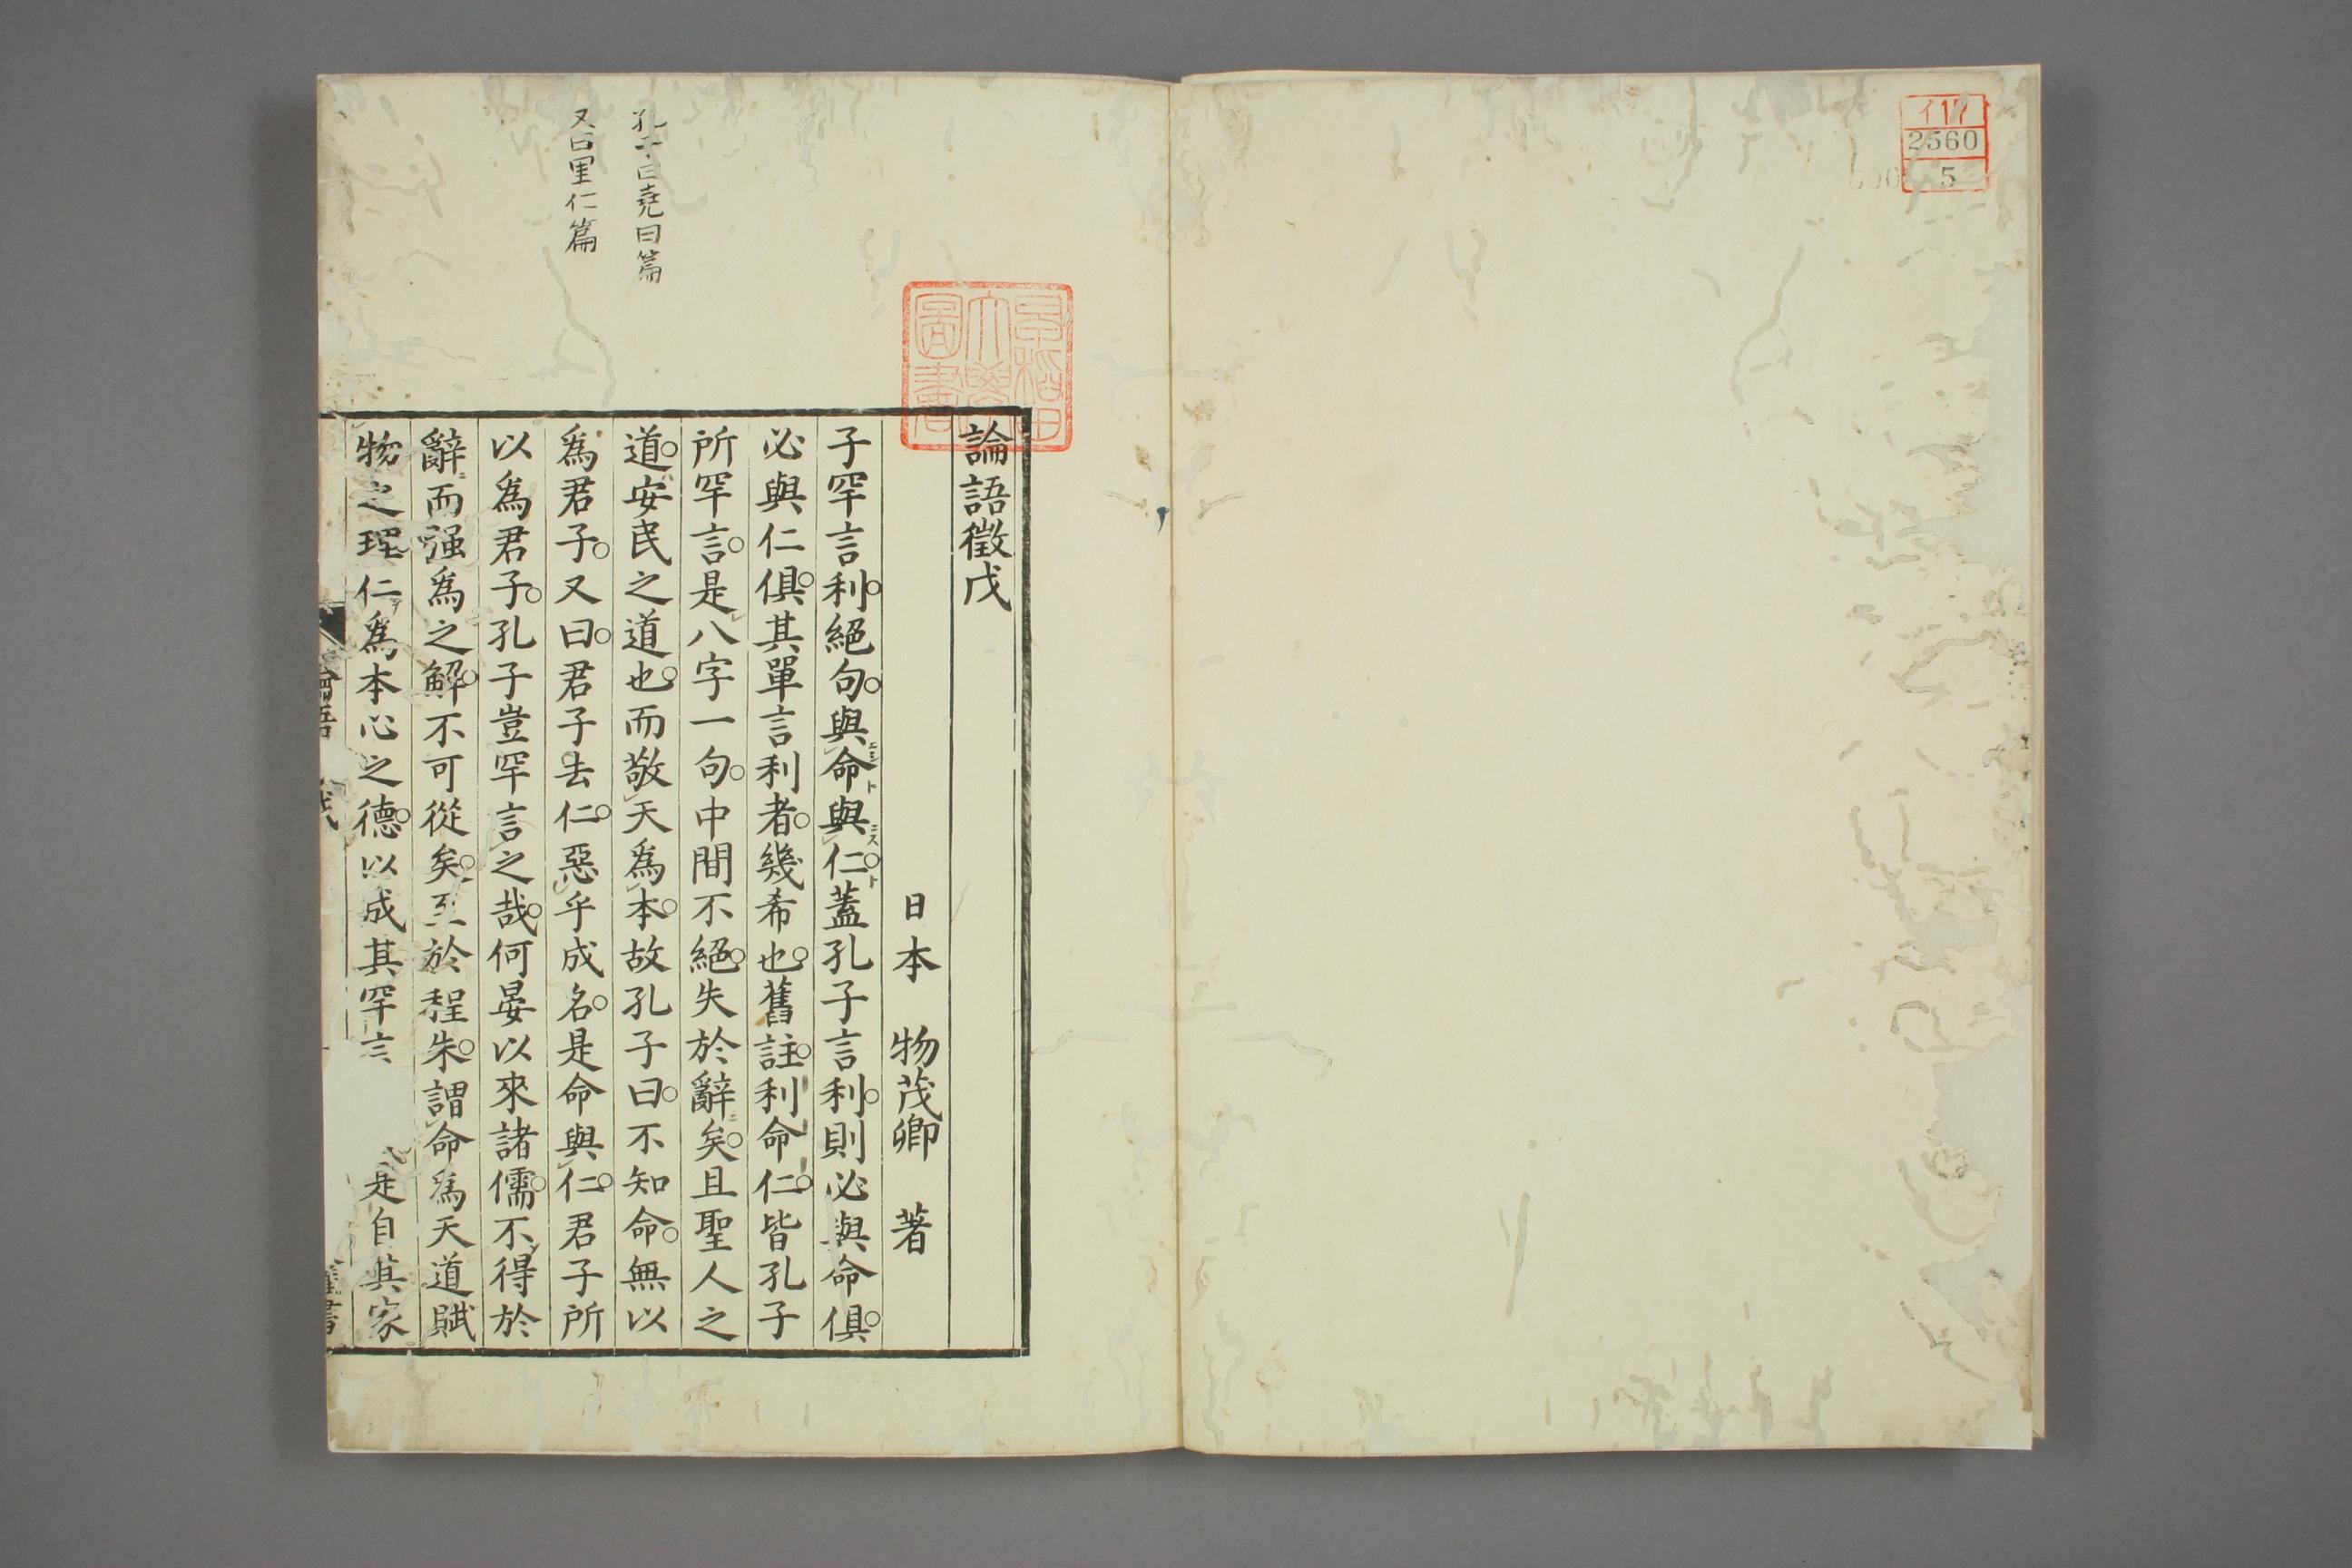 イ17
2560
5
孔子曰堯曰篇
又曰里仁篇
早稲田大學圖書
論語徵戊
日本 物茂卿 著
子罕言利絕句與命與仁蓋孔子言利則必與命俱
必與仁俱其單言利者幾希也舊註利命仁皆孔子
所罕言是八字一句中間不絕失於辭矣且聖人之
道安民之道也而敬天為本故孔子曰不知命無以
為君子又曰君子去仁惡乎成名是命與仁君子所
以為君子孔子豈罕言之哉何晏以來諸儒不得於
辭而强為之解不可從矣至於程朱謂命為天道賦
物之理仁為本心之德以成其罕言 是自其家